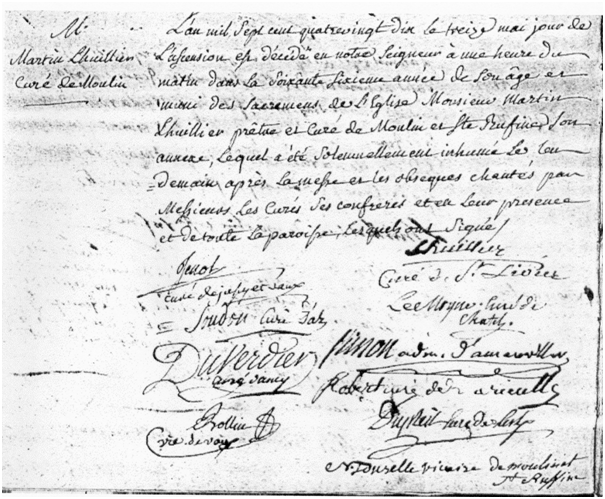 Mr
Martin Lhuillier
Curé de Moulin
L'an mil sept cent quatrevingt dix le treize mai jour de
L'ascension est décédé en notre Seigneur à une heure du
matin dans la soixante sixieme année de son âge et
muni des Sacremens de L'Eglise Monsieur Martin
Lhuillier prêtre et Curé de Moulin et Ste Ruffine, son
annexe, Lequel a été solemnellement inhumé Le len
=demain, après la messe et les obseques chantés par
Messieurs Les Curés ses confreres et en Leur presence
et de toute La paroisse, Lesquels ont signés
Lhuillier
Curé de St Livier
Jenot
curé de jussy et vaux
Le Moyne Curé de
Chatel.
= Soudon Curé d'ars
Duverdier
curé
Simon adm. d'amanviller
Robert curé de
Rollin
Curé de
curé de
vicaire de moulin et
St Ruffine